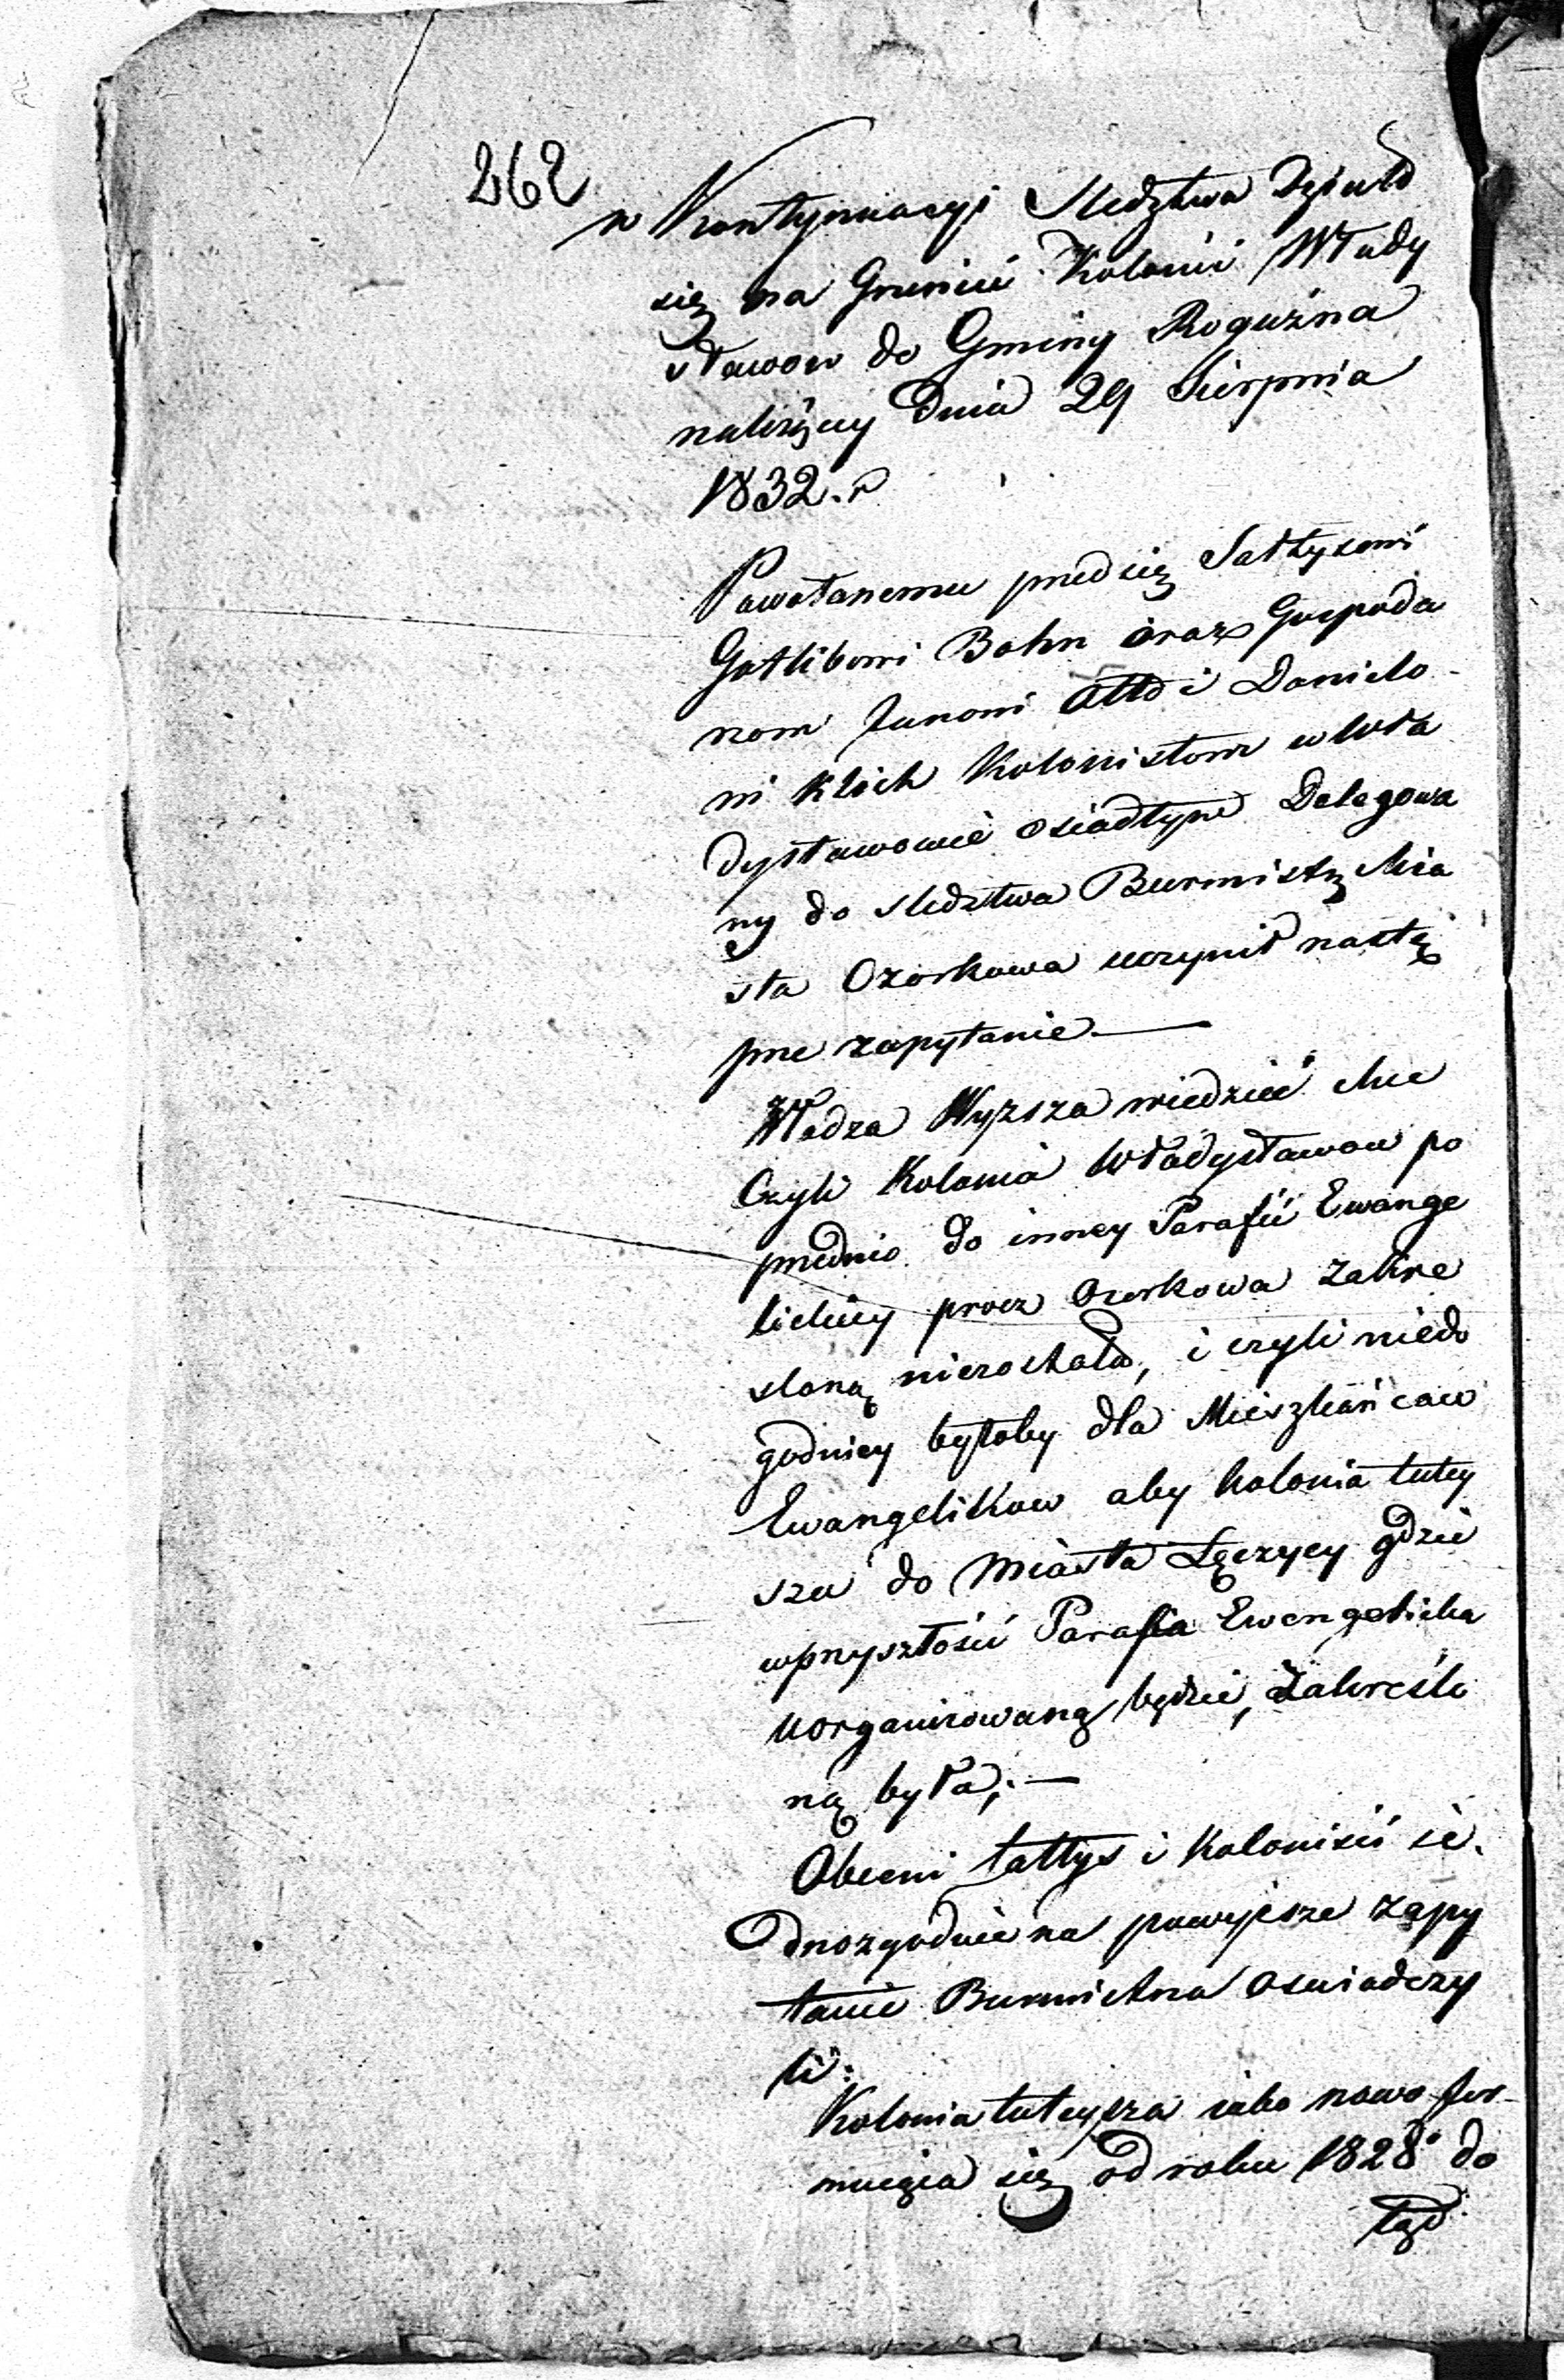 262
w Kontynuacyi Sledztwa Działo
się na Gruncie Kolonii Włady
sławow do Gminy Roguźna
należący Dnia 29 Sierpnia
1832. r
Powołanemu przed się Sołtysowi
Gotlibowi Bohn oraz Gospoda
rzom Janowi Otto i Danielo
wi Klich Kolonistom w Wła
dysławowie osiadłym Delegowa
ny do sledztwa Burmistrz Mia
sta Ozorkowa uczynił nastę
pne zapytanie. —
Władza Wyzsza wiedzieć chce
Czyli Kolonia Władysławow po
przednio do inney Parafii Ewange
lickiey procz Ozorkowa Zakre
sloną niezostała, i czyli niedo
godniey byłoby dla Mieszkańcow
Ewangelikow aby Kolonia tutey
sza do Miasta Łęczycy gdzie
wprzyszłości Parafia Ewangelicka
uorganizowaną będzie, Zakreślo
ną była; —
Obecni Sołtys i Koloniści ie.
dnozgodnie na powyzsze zapy
tanie Burmistrza oswiadczy
li:
Kolonia tuteysza iako nowo for
muiąca się od roku 1828 do
tąd